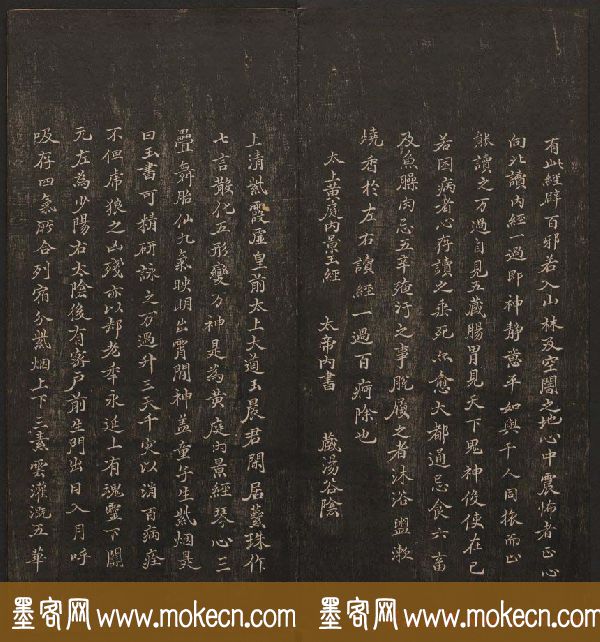 有此經辟百邪若入山林及空闇之地心中震怖者正心
向北讀內經一過即神靜意平如與千人同旅而止
能讀之万過自見五藏腸胃見天下鬼神役使在己
若困病者心存讀之垂死亦愈大都通忌食六畜
及魚臊肉忌五辛之事脫履之者沐浴盥漱
燒香於左右讀經一過百痾除也
太上黃庭內景玉經 太帝內書 藏湯谷陰
上清紫霞虛皇前太上大道玉晨君閑居蘂珠作
七言散化五形變万神是為黃庭內景經琴心三
疊舞胎仙九氣映明出霄間神蓋童子生紫烟是
曰玉書可精研詠之万過升三天千灾以消百病痊
不但虎狼之凶殘亦以却老年永延上有魂靈下關
元左為少陽右太陰後有密戶前生門出日入月呼
吸存四氣所合列宿分紫烟上下三素雲灌溉五華
墨客网 www.mokecn.com 墨客网 www.mokecn.com